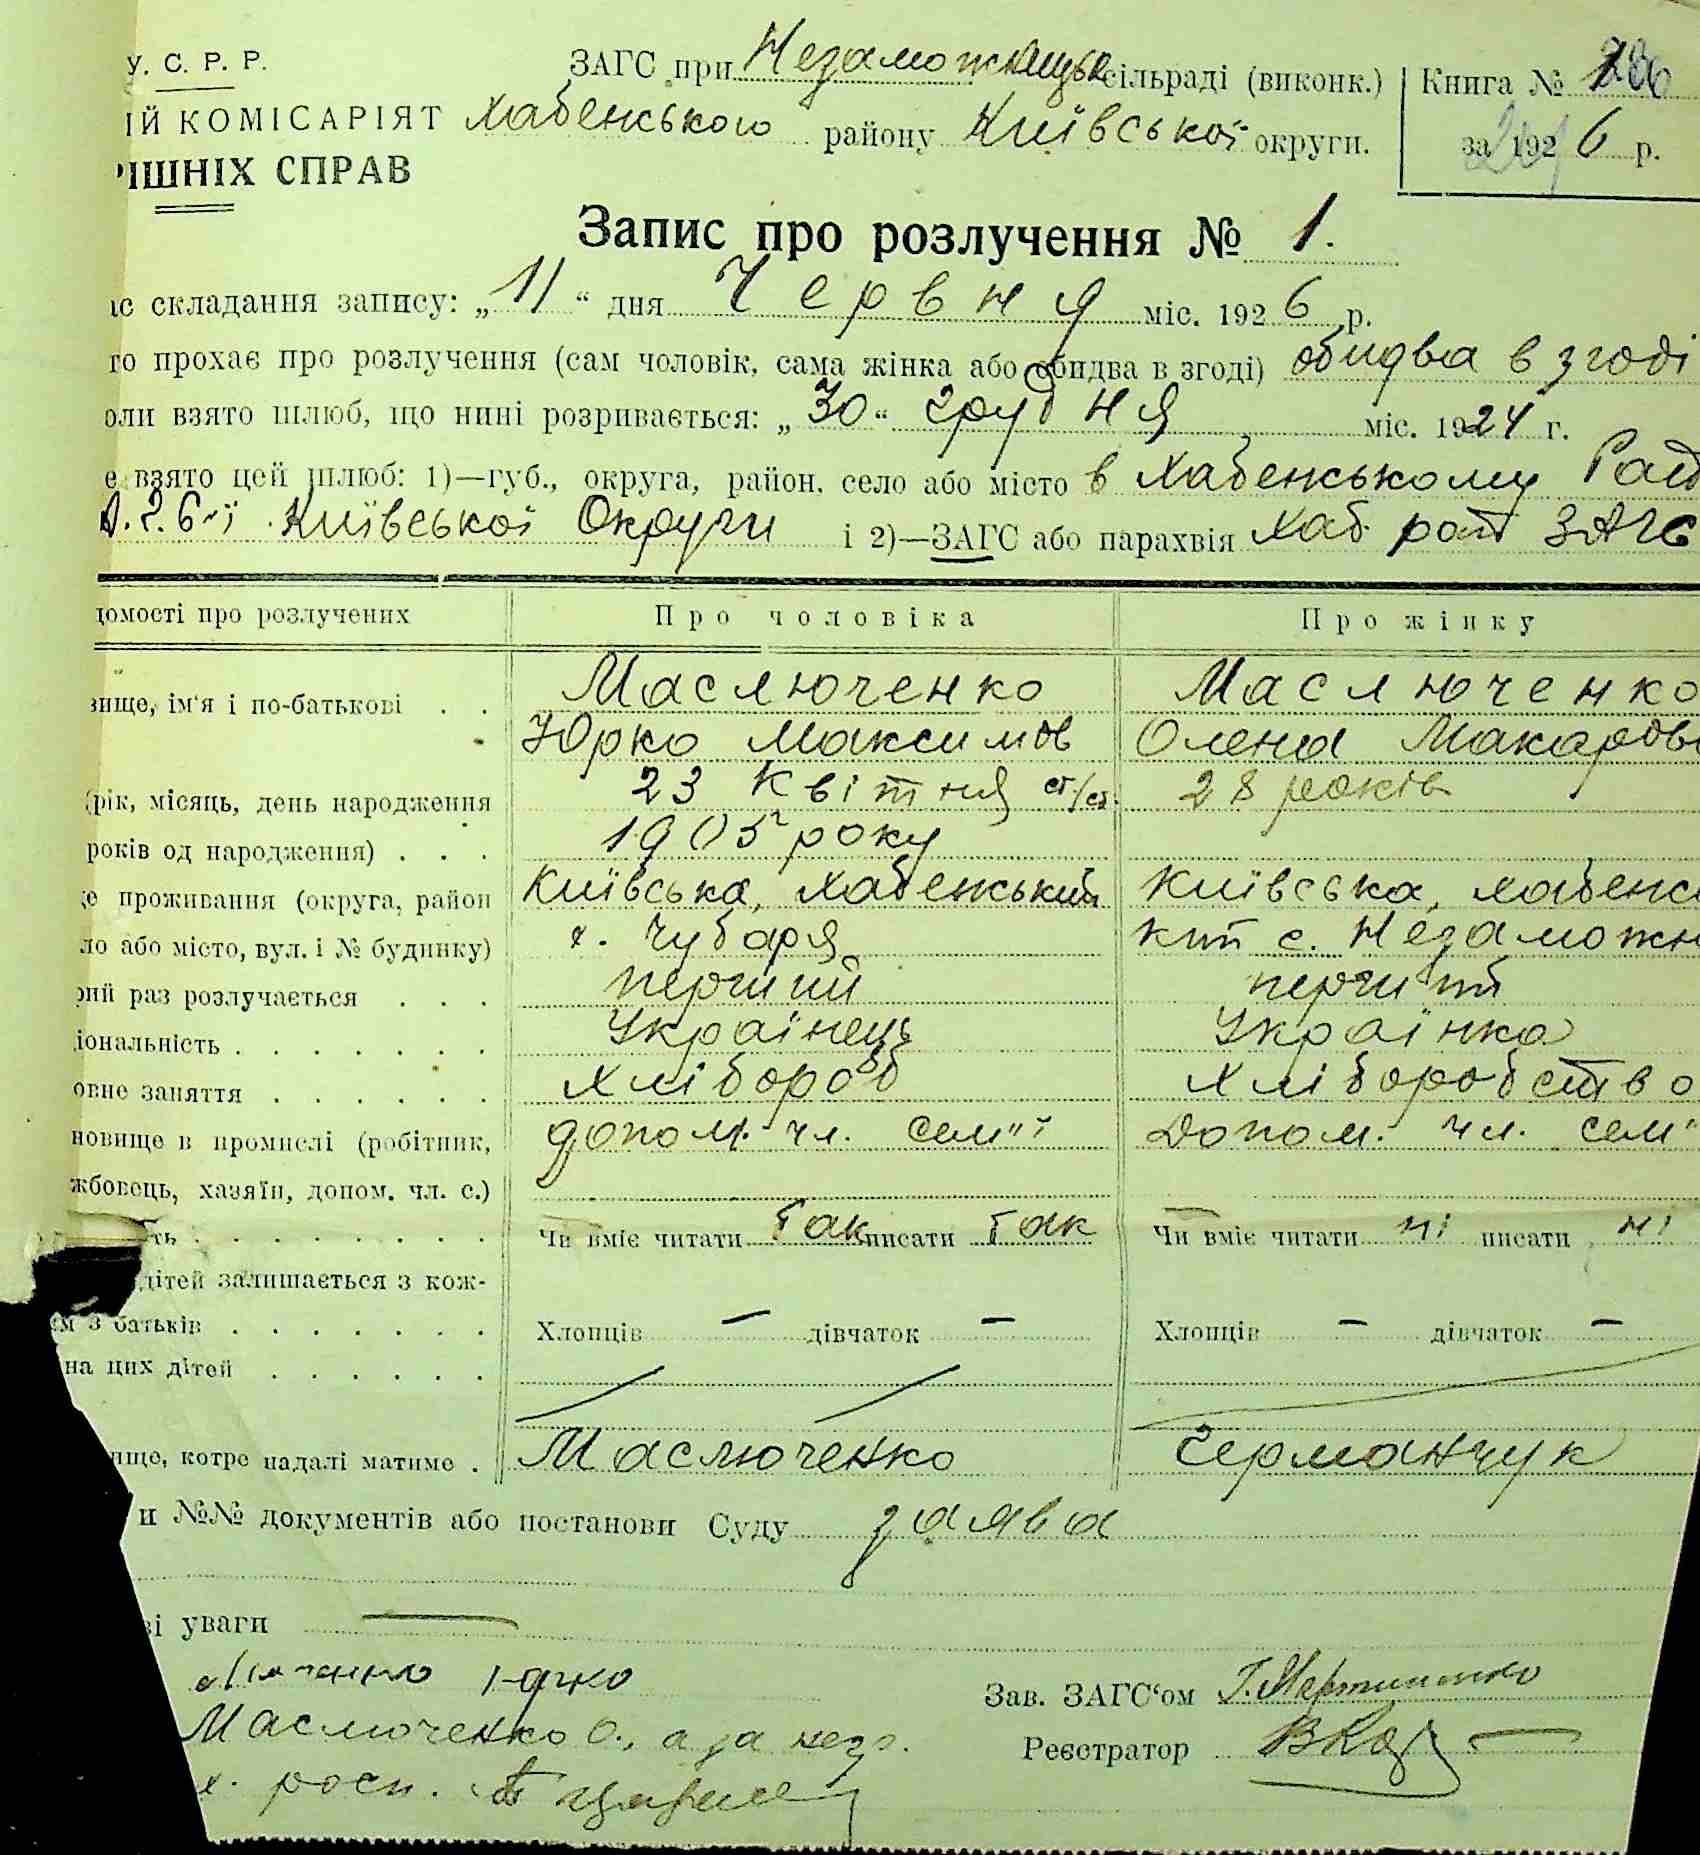 У. С. Р. Р.
ЗАГС при Незаможницьк сільраді (виконк.)
Книга №
ІЙ КОМІСАРІЯТ
Хабенського району Київської округи.
за 1926 р.
ІШНІХ СПРАВ
Запис про розлучення № 1.
ас складання запису: „11“ дня Червня міс. 1926 р.
то прохає про розлучення (сам чоловік, сама жінка або обидва в згоді) обидва в згоді
оли взято шлюб, що нині розривається: „30“ грудня міс. 1924 г.
е взято цей шлюб: 1)—губ., округа, район, село або місто в Хабенському Рай
Київської Округи і 2)—ЗАГС або парахвія Хаб. рай ЗАГС
домості про розлучених Про чоловіка Про жінку
вище, ім'я і по-батькові . . Маслюченко Маслюченко
Юрко Максимов Олена Макаров
(рік, місяць, день народження 23 Квітня ст/ст. 28 років
років од народження) . . . 1905 року
це проживання (округа, район Київська, Хабенський Київська, Хабенсь
ло або місто, вул. і № будинку) х. Чубаря кий с. Незаможн
рий раз розлучається . . . перший перший
іональність . . . . . . . Українець Українка
овне заняття . . . . . . Хлібороб Хліборобство
новище в промислі (робітник, допом. чл. сем"ї Допом. чл. сем"
жбовець, хазяїн, допом. чл. с.)
ть . . . . . . . . Чи вміє читати так писати так Чи вміє читати ні писати ні
дітей залишається з кож-
им з батьків . . . . . . . Хлопців — дівчаток — Хлопців — дівчаток —
на цих дітей . . . . . .
ище, котре надалі матиме . Маслюченко Германчук
и №№ документів або постанови Суду заява
ві уваги —
Юрко
Зав. ЗАГС'ом Г. Мартиненко
Маслюченко О., а за неп.
Реєстратор
х. росп.